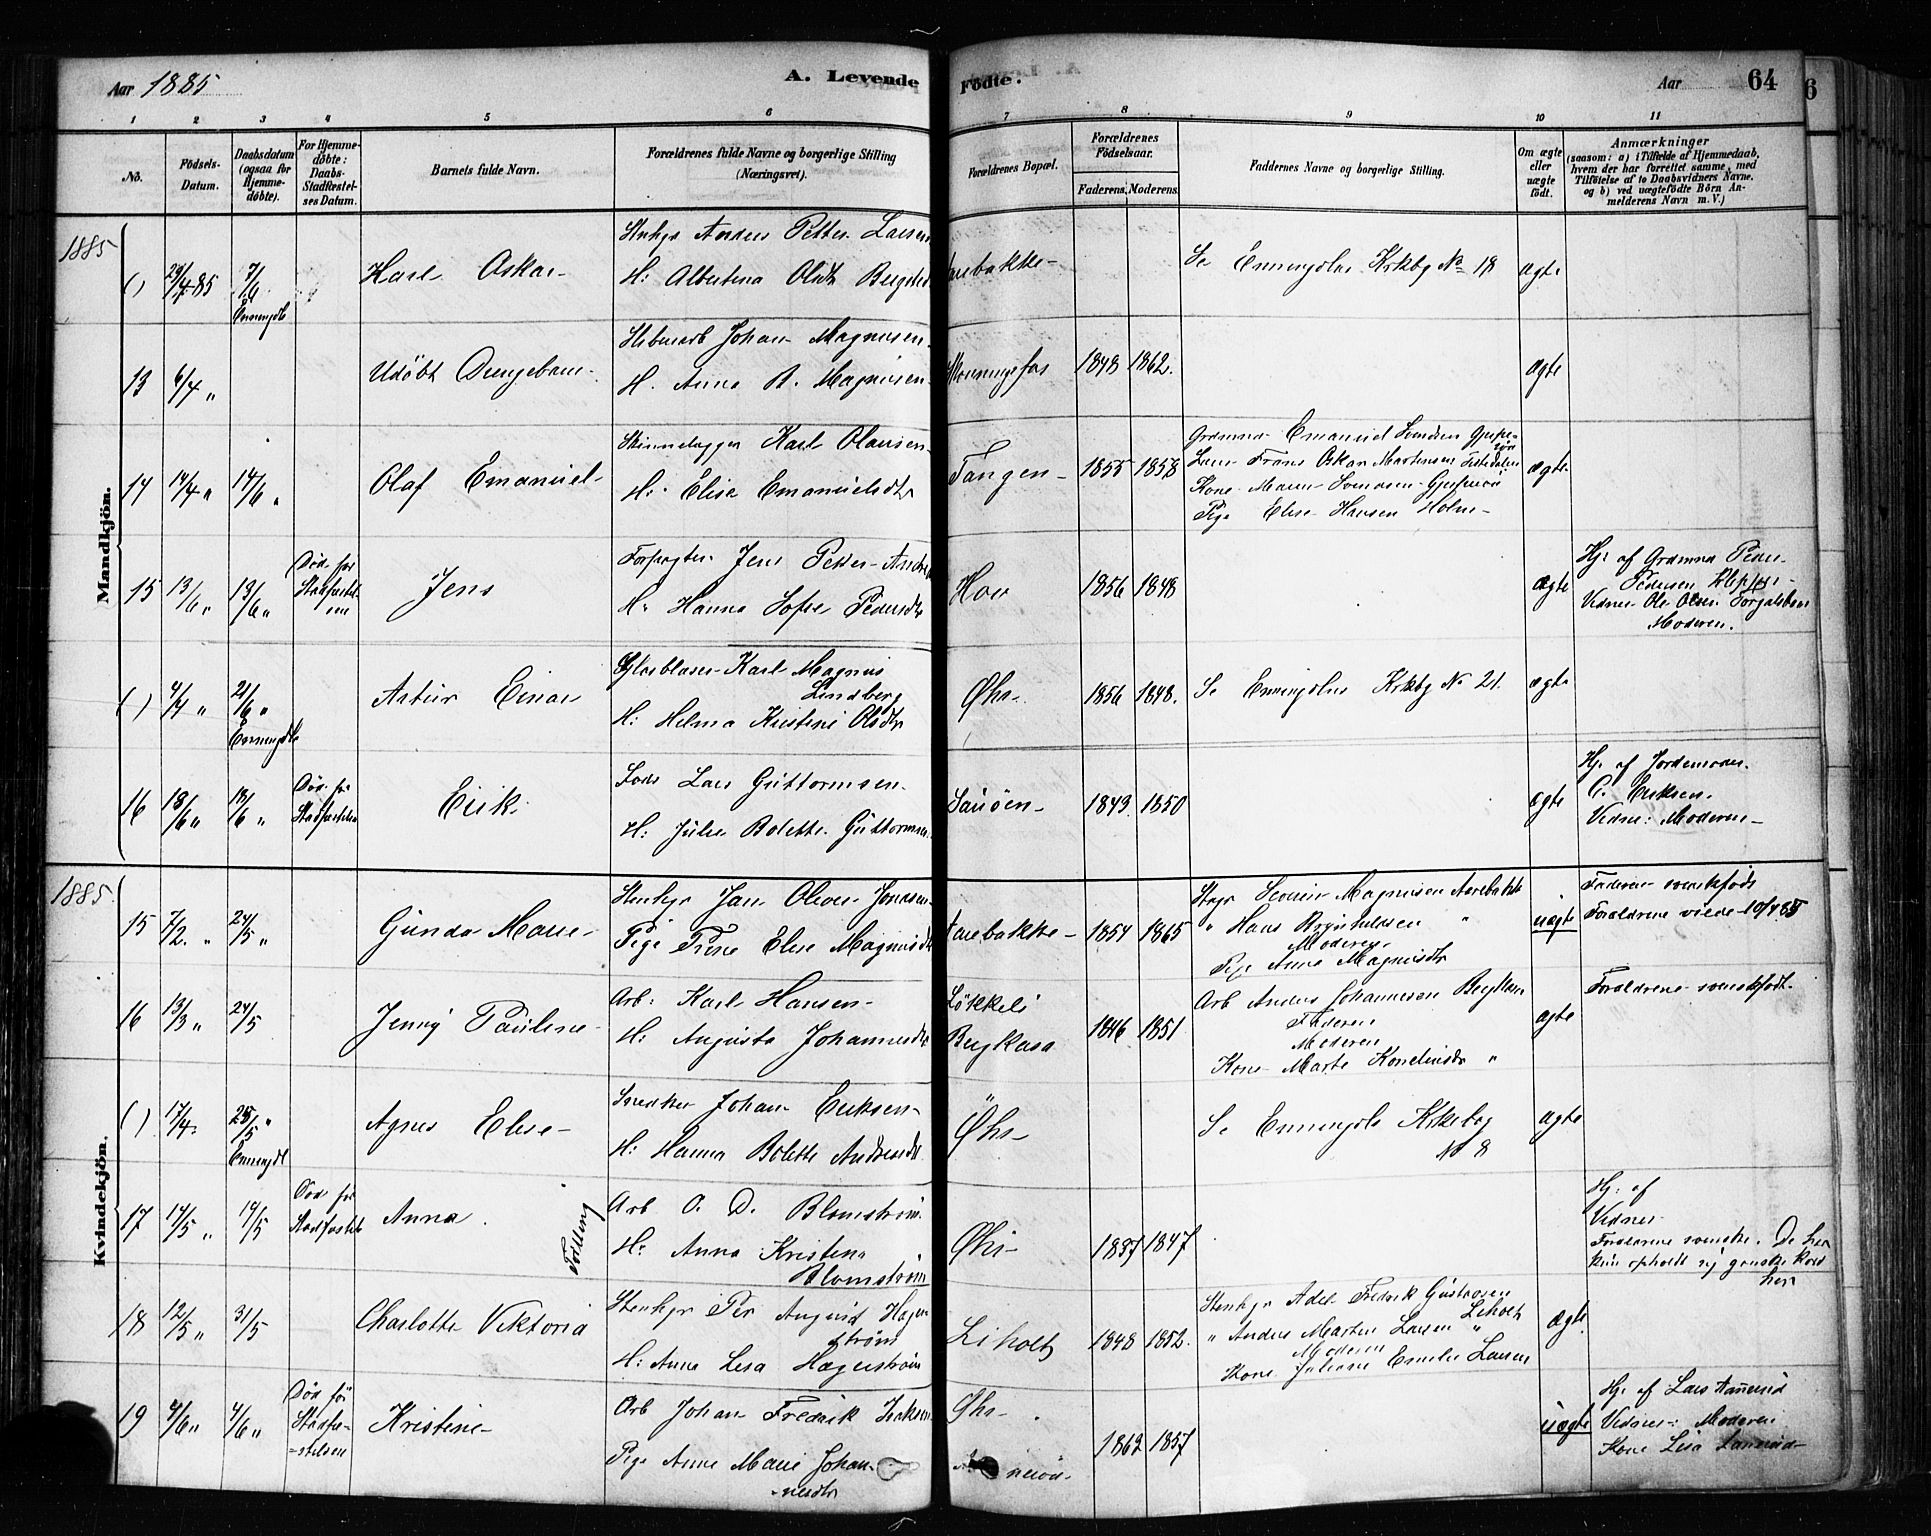 Aar 1885
A. Levende
Fødte.
Aar
64
6
1 2 3 4 5 6 7 8 9 10 11
No.
Fødsels-
Datum.
Daabsdatum
(ogsaa for
Hjemme-
døbte).
For Hjemme-
døbte:
Daabs-
Stadfæstel-
ses Datum.
Barnets fulde Navn.
Forældrenes fulde Navne og borgerlige Stilling
(Næringsvei).
Forældrenes Bopæl.
Forældrenes
Fødselsaar.
Faderens. Moderens.
Faddernes Navne og borgerlige Stilling.
Om ægte
eller
uægte
født.
Anmærkninger
(saasom: a) i Tilfælde af Hjemmedaab,
hvem der har forrettet samme, med
Tilføielse af to Daabsvidners Navne.
og b) ved uægtefødte Börn An-
melderens Navn m. V.)
Mandkjön.
1885
( ) 29/4 85 7/6
Enningdl
Karl Oskar
Stenhgr Anders Petter Larsen
H: Albertina Olsdtr
Se Enningdlns Krkbg No 18
ægte
13 6/4 "
Udøbt Drengebarn
Johan Magnusen
H. Anna B. Magnusen
1848 1862.
ægte
14 14/4 " 14/6 "
Olaf Emanuel
Karl Olausen
H: Elise Emanuelsdtr
Tangen
1855 1858
Grdmnd Emanuel Svendsen
Frans Oskar Martinsen
Kone Maren Svendsen
Pige Elise Hansen Holm
ægte
15 13/6 " 13/6 "
Død før
Stadfæstel-
sen
Jens
Forpagter Jens Petter
H: Hanna Sofie Pedersdtr
Hov
1856 1848
ægte
Hj: af Grdmnd Peder
Pedersen
Vidner Ole Olsen
Moderen.
( ) 4/4 " 21/6 "
Enningdl
Artur Einar
Glasblaser Karl Magnus
Lindberg
H: Helma Kristine Olsdtr
Øhs
1856 1848.
Se Enningdlns Krkbg No 21.
ægte
16 18/6 " 18/6 "
Død før
Stadfæstelsen
Eirik
Lods Lars Guttormsen
H: Julie Bolette Guttormsen
Sauøen
1843 1850
ægte
Hj. af Jordemoder
C. Eriksen.
Vidne: Moderen
Kvindekjön.
1885.
15 7/2 " 24/5 "
Gunda Marie
Stenhgr Jan Oliver Jonasen
Pige Trine Elise Magnusdtr
Aarebakke
1854 1865
Severin Magnusen Aarebakke
" Hans "
Moderen
Pige Anna Magnusdtr
uægte
Faderen svenskfødt
Forældrene viede 10/4 85
16 13/3 " 24/5
Jenny Pauline
Arb: Karl Hansen
H: Augusta Johannesdtr
Løkkeli
Bergkasa
1846 1851
Arb Anders Johannesen
Faderen
Moderen
Kone Marte "
ægte
Forældrene svenskfødt.
( ) 17/4 25/5 "
Enningdl
Agnes Elise
Snedker Johan Eriksen
H: Hanna Bolette Andersdtr
Øhs
Se Enningdls Krkebog
No 8
ægte
17 14/5 " 14/5
Død før
Stadfæstels
Anna
Tvilling
Arb O. D. Blomstrøm
H: Anna Kristina
Blomstrøm
Øhs
1837 1847
Hj: af
Vidner
Forældrene svenske. De har
kun opholdt sig ganske kort
her
18 12/5 " 31/5
Charlotte Viktoria
Stenhgr Per August Hager
strøm
H: Anna Lisa Hagerstrøm
Liholt
1848 1852.
Stenhgr Adel Fredrik Gustavsen
Liholt
" Anders Martin Larsen "
Moderen
Kone Juliane Emelie Larsen
ægte
19 4/6 " 4/6 "
Død før
Stadfæ-
stelsen
Kristine
Arb Johan Fredrik
Pige Anne Marie Johan-
nesdtr
Øhs
1862 1857
uægte
Hj. af Lars
Vidner: Moderen
Kone Lisa